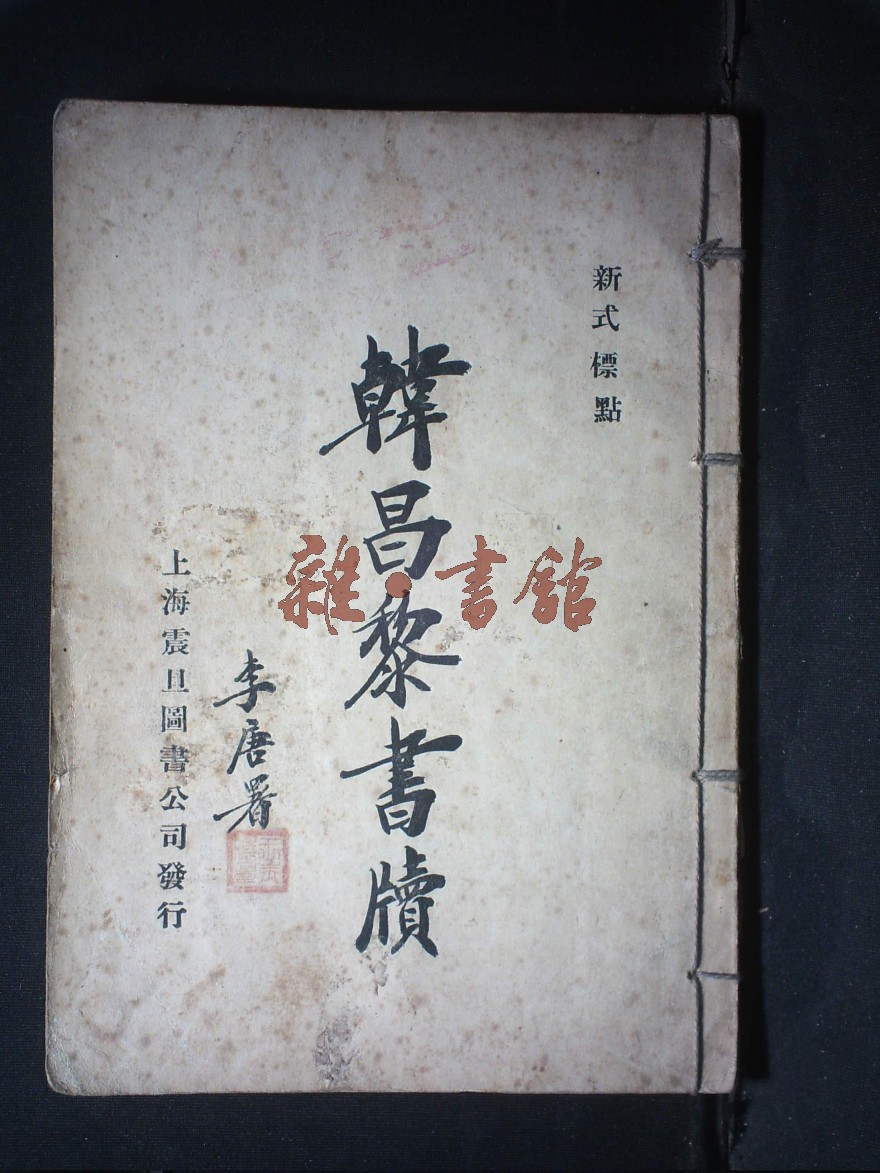 新式標點
韓昌黎書牘
李唐署
上海震旦圖書公司發行
雜·書館